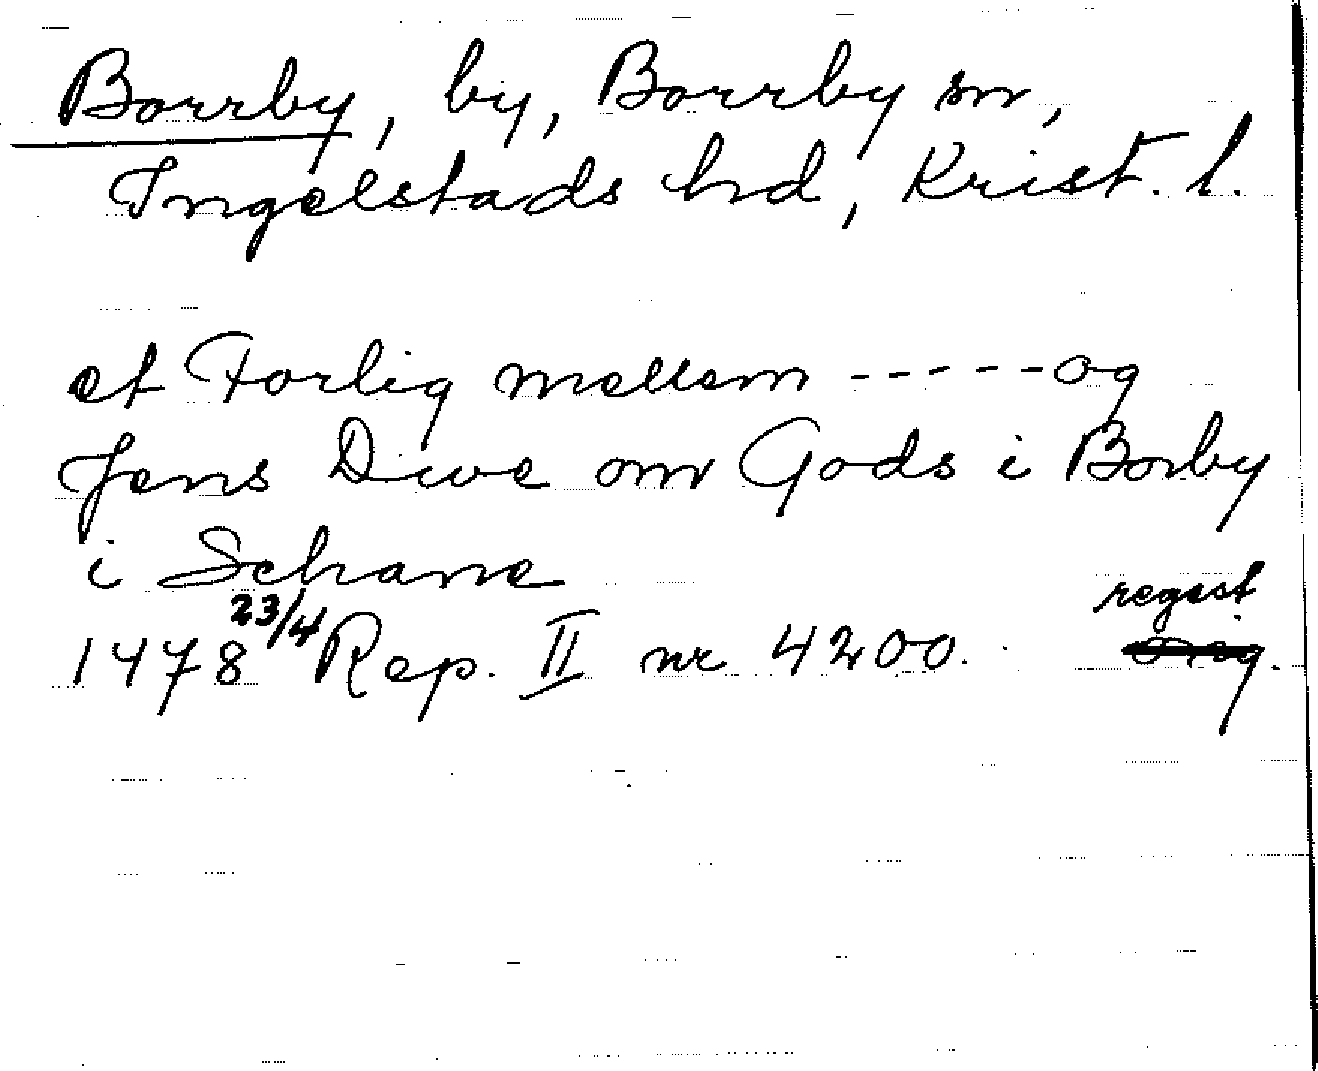 Borrby, by, Borrby sn,
Ingelstads hd, Krist. l.
et Forlig mellem - - - - - og
Jens Dwe om Gods i Borby
i Schane
regest
1478 23/4 Rep. II nr 4200.